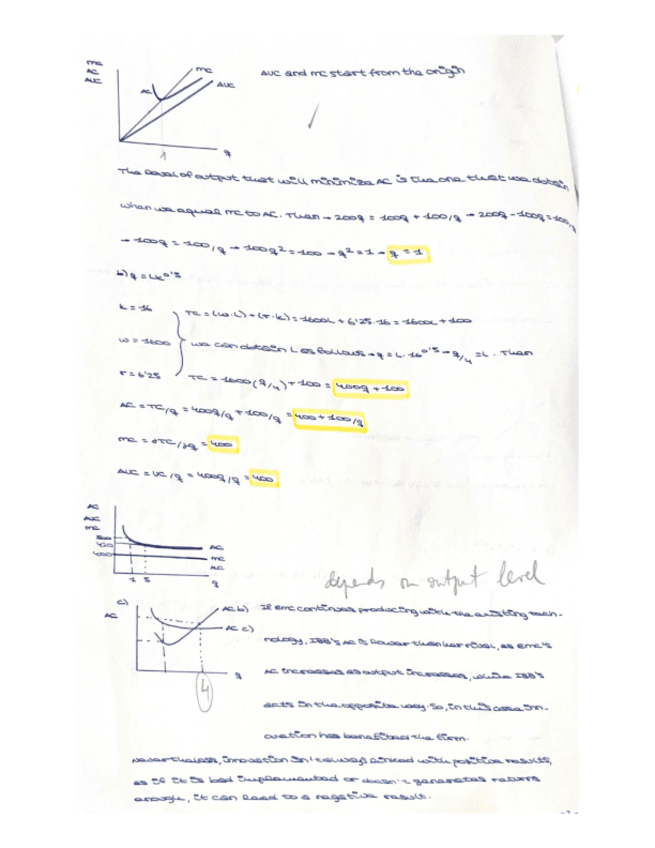 MC
AC
AVC
MC
AC
AVC
AVC and MC start from the origin
1
q
The level of output that will minimize AC is the one that we obtain
when we equal MC to AC. Then → 200q = 100q + 100/q → 200q - 100q = 100/q
→ 100q = 100/q → 100q² = 100 → q² = 1 → q = 1
b) q = LK^0'5
K = 16
TC = (w·L) + (r·K) = 1600L + 6'25·16 = 1600L + 100
w = 1600
we can obtain L as follows → q = L·16^0'5 → q/4 = L. Then
r = 6'25
TC = 1600(q/4) + 100 = 400q + 100
AC = TC/q = 400q/q + 100/q = 400 + 100/q
MC = ∂TC/∂q = 400
AVC = VC/q = 400q/q = 400
AC
AVC
MC
500
420
400
AC
MC
1 5
q
depends on output level
c)
AC
AC b)
AC c)
q
4
If EMC continues producing with the existing tech-
nology, IBB's AC is lower than her rival, as EMC's
AC increases as output increases, while IBB's
acts in the opposite way. So, in this case inn-
ovation has benefited the firm.
Nevertheless, innovation isn't always linked with positive results,
as if it is bad implemented or doesn't generates returns
enough, it can lead to a negative result.